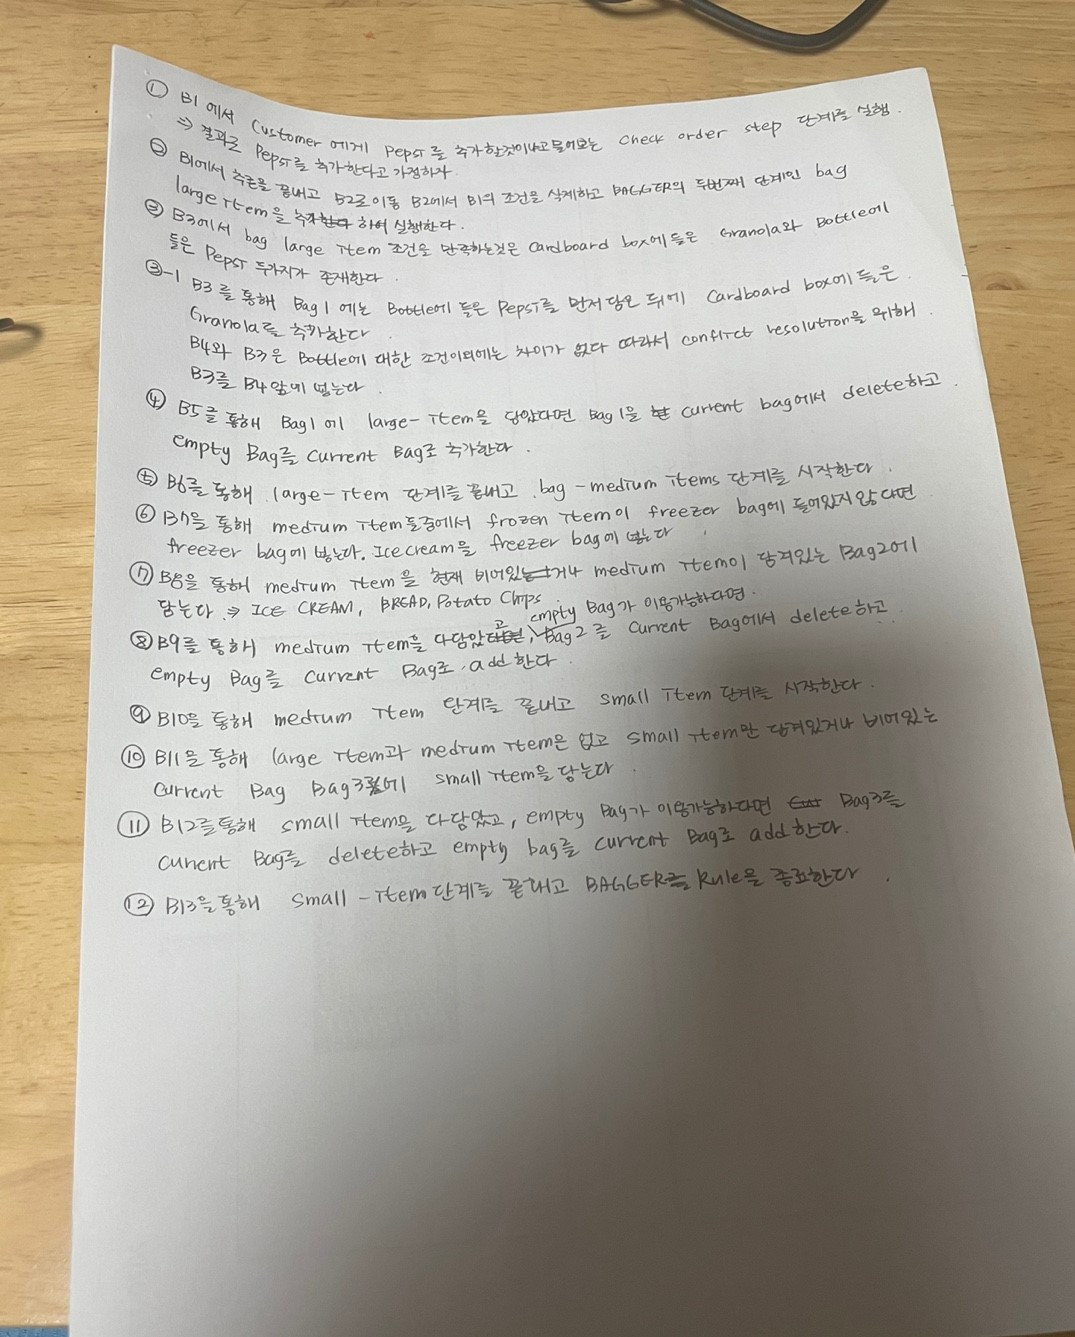 ① B1에서 Customer에게 Pepsi를 추가할것이냐고물어보는 Check order step 단계를 실행.
⇒ 결과로 Pepsi를 추가한다고 가정하자.
② B1에서 추론을 끝내고 B2로이동 B2에서 B1의 조건을 삭제하고 BAGGER의 두번째 단계인 bag
large item을 하여 실행한다.
③ B3에서 bag large item 조건을 만족하는것은 Cardboard box에 들은 Granola와 Bottle에
들은 Pepsi 두가지가 존재한다.
③-1 B3를 통해 Bag1에는 Bottle에 들은 Pepsi를 먼저 담은 뒤에 Cardboard box에 들은
Granola를 추가한다
B4와 B3은 Bottle에 대한 조건이외에는 차이가 없다 따라서 conflict resolution을 위해
B3를 B4앞에 넣는다.
④ B5를 통해 Bag1에 large-item을 담았다면 Bag1을 current bag에서 delete하고
empty Bag를 Current Bag로 추가한다.
⑤ B6를 통해 large-item 단계를 끝내고 bag-medium items 단계를 시작한다.
⑥ B7을 통해 medium item들중에서 frozen item이 freezer bag에 들어있지 않다면
freezer bag에 넣는다. Ice cream을 freezer bag에 넣는다
⑦ B8을 통해 medium item을 현재 비어있거나 medium item이 담겨있는 Bag2에
담는다 ⇒ ICE CREAM, BREAD, Potato Chips
⑧ B9를 통해 medium item을 다담았고, empty Bag가 이용가능하다면. Bag2를 Current Bag에서 delete하고
empty Bag를 Current Bag로 add한다.
⑨ B10을 통해 medium item 단계를 끝내고 small item 단계를 시작한다.
⑩ B11을 통해 large item과 medium item은 없고 small item만 담겨있거나 비어있는
Current Bag Bag3에 small item을 담는다.
⑪ B12를통해 small item을 다담았고, empty Bag가 이용가능하다면 Bag3를
Current Bag를 delete하고 empty bag를 current Bag로 add한다.
⑫ B13을통해 small-item단계를 끝내고 BAGGER Rule을 종료한다.